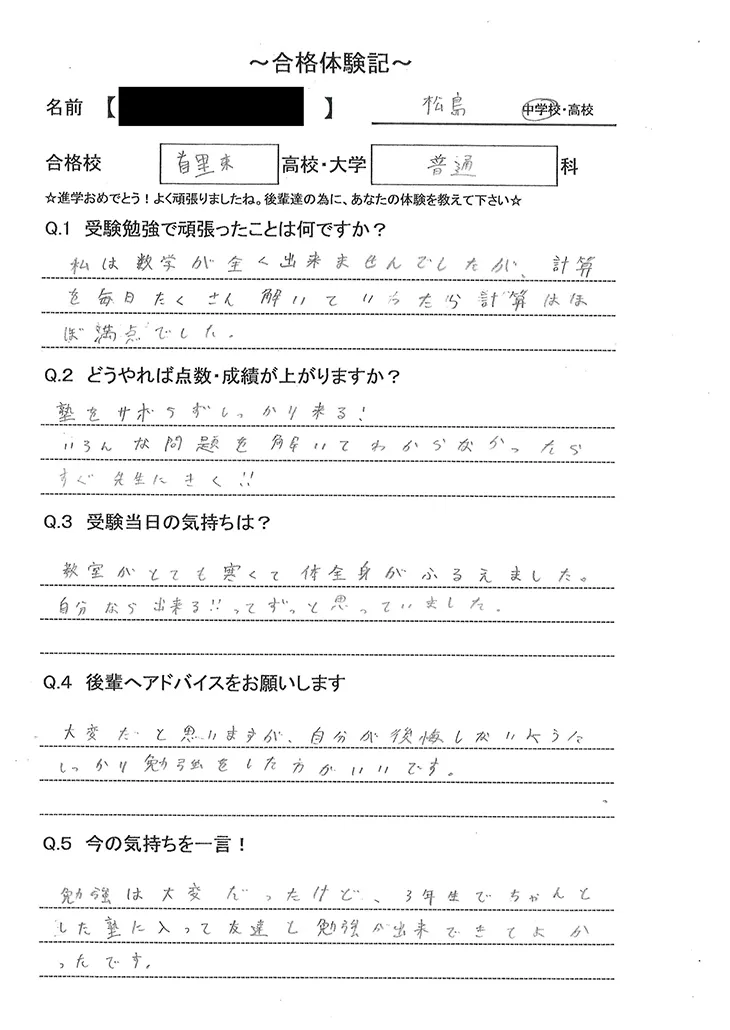 ～合格体験記～
名前 【 】 松島 中学校・高校
合格校 首里東 高校・大学 普通 科
☆進学おめでとう！よく頑張りましたね。後輩達の為に、あなたの体験を教えて下さい☆
Q.1 受験勉強で頑張ったことは何ですか？
私は数学が全く出来ませんでしたが、計算
を毎日たくさん解いていったら計算はほ
ぼ満点でした。
Q.2 どうやれば点数・成績が上がりますか？
塾をサボらずしっかり来る！
いろんな問題を解いてわからなかったら
すぐ先生にきく!!
Q.3 受験当日の気持ちは？
教室がとても寒くて体全身がふるえました。
自分なら出来る!!ってずっと思っていました。
Q.4 後輩へアドバイスをお願いします
大変だと思いますが、自分が後悔しないように
しっかり勉強をした方がいいです。
Q.5 今の気持ちを一言！
勉強は大変だったけど、3年生でちゃんと
した塾に入って友達と勉強が出来できてよか
ったです。